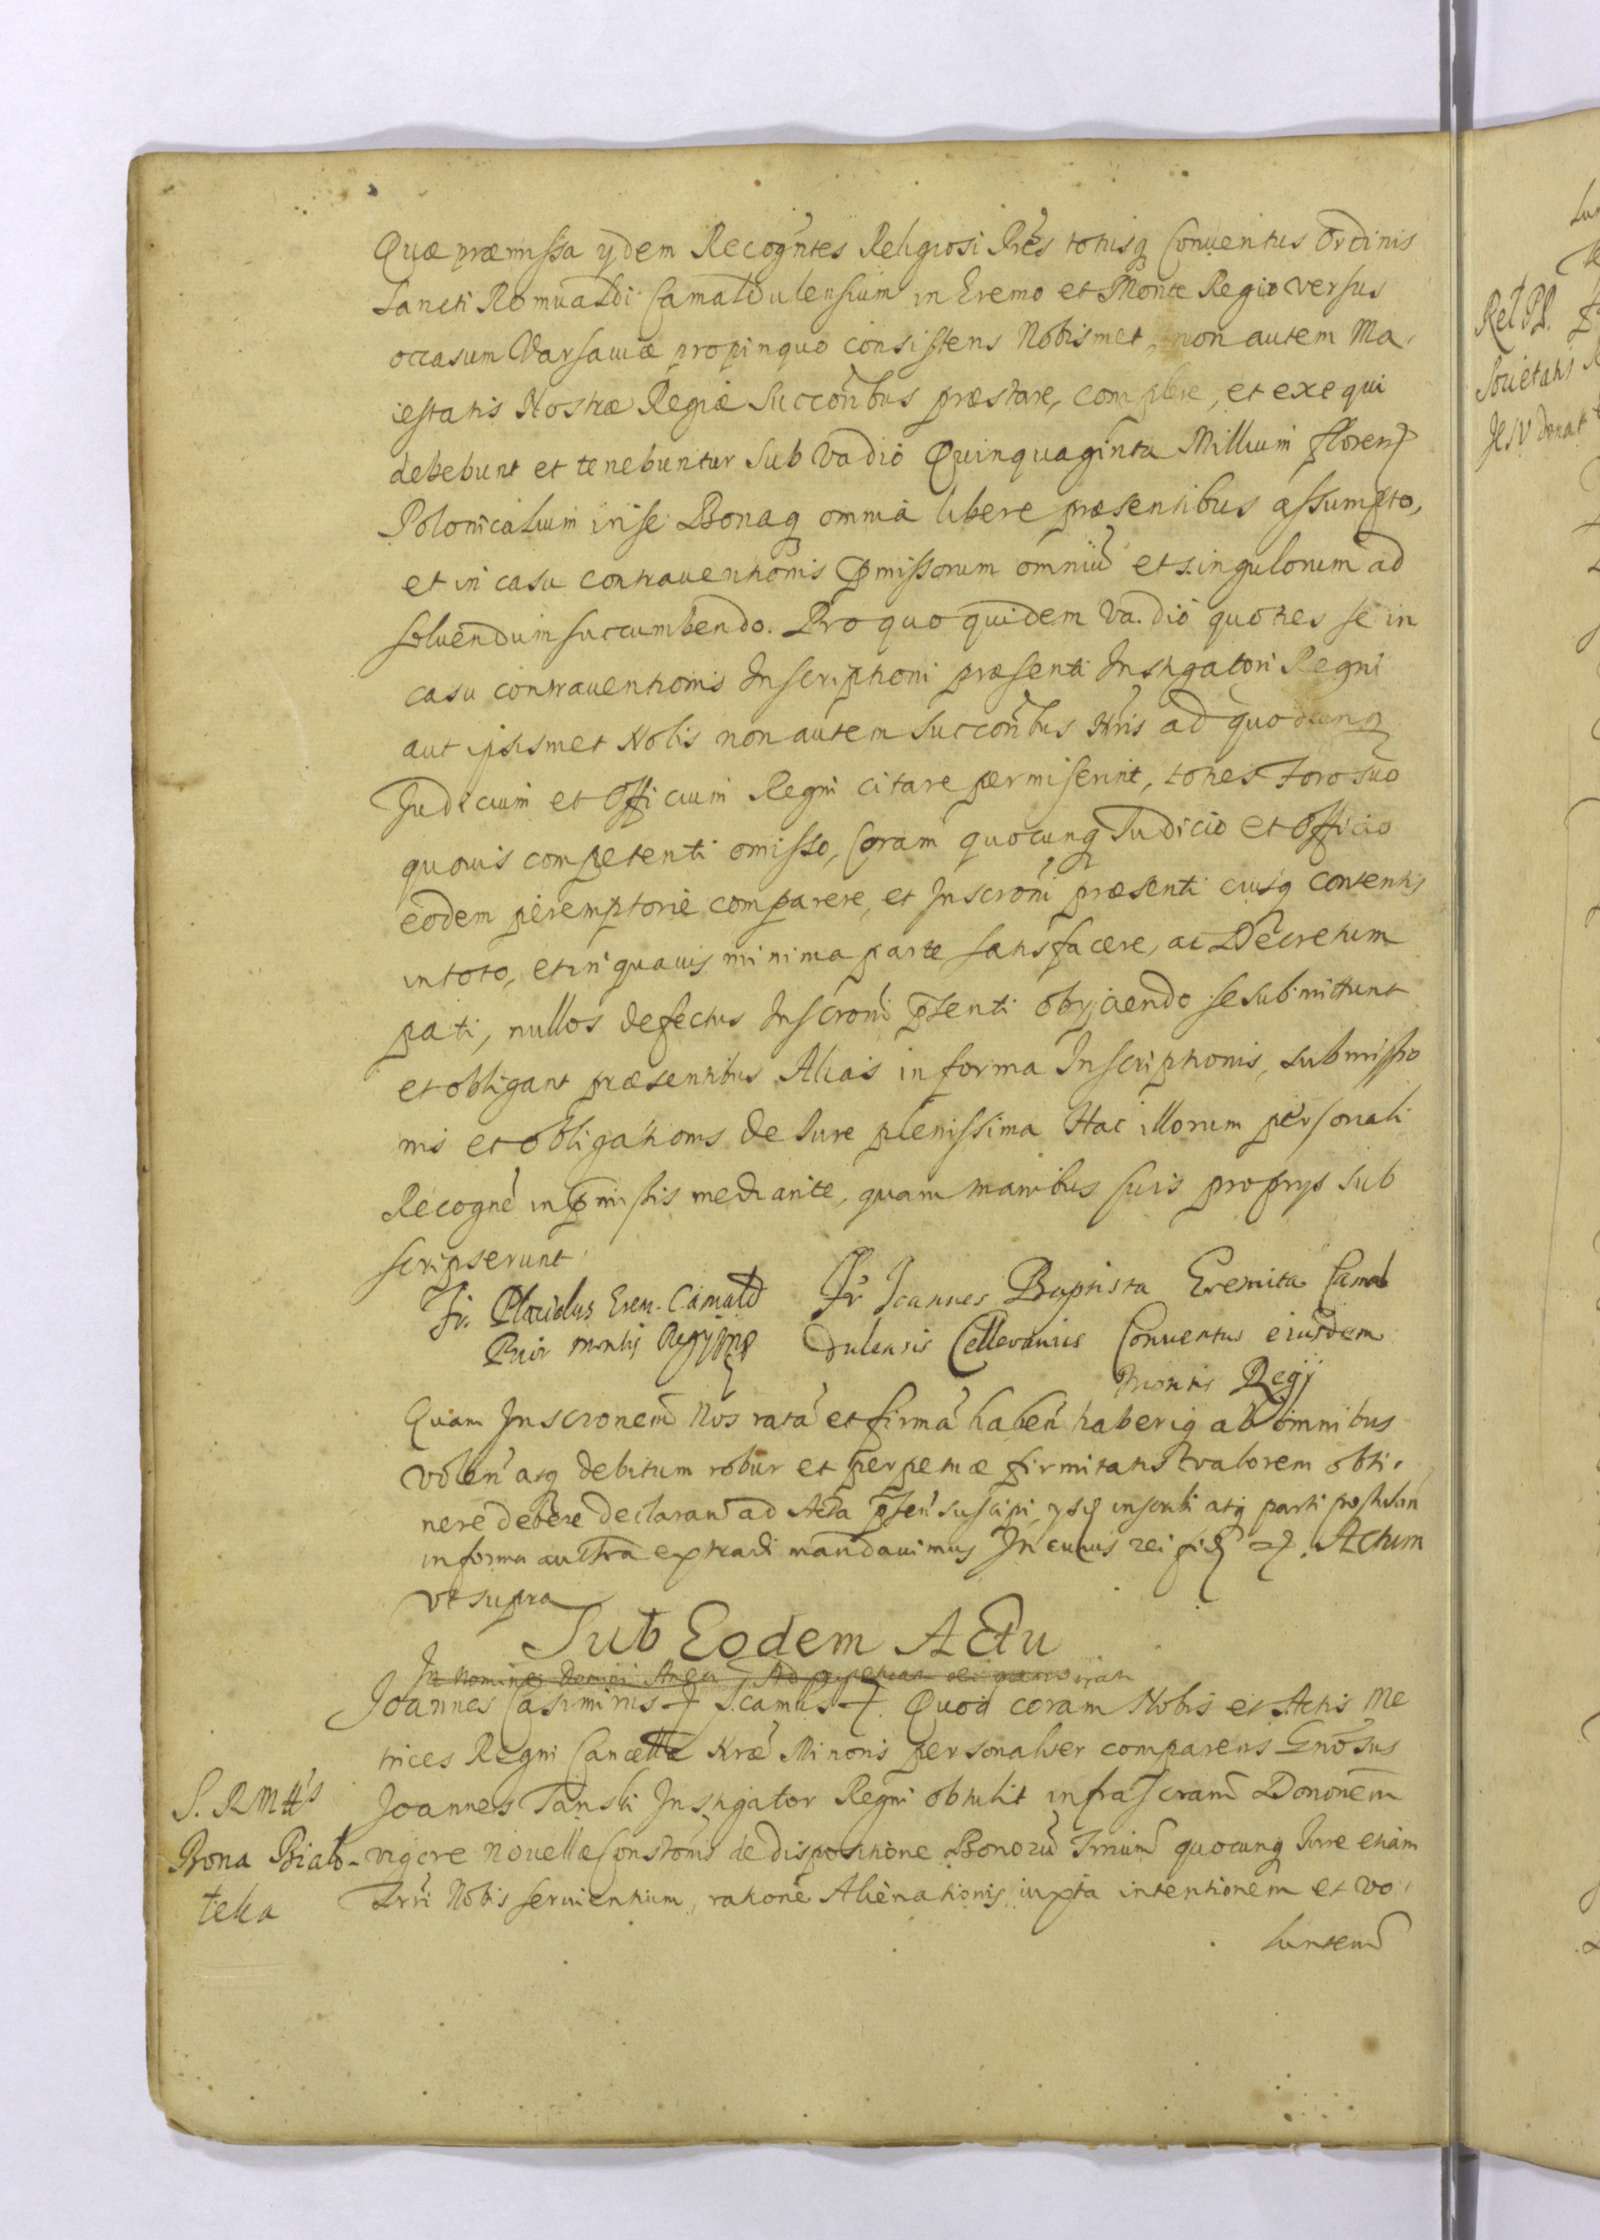 Quæ præmissa ydem Recogntes Religiosi Pres totusq Conuentus Ordinis
Sancti Romualdi Camaldulensium in Eremo et Monte Regio versus
occasum Varsauiæ propinquo consistens Nobismet, non autem Ma
iestatis Nostræ Regiæ Succoribus præstare, complere, et exequi
debebunt et tenebuntur sub vadio Quinquaginta Millium floren
Polonicalium in se Bonaq omnia libere præsentibus assumpto,
et in casu contrauentionis pmissorum omniu et singulorum ad
soluendum succumbendo. Pro quo quidem vadio quoties se in
casu contrauentionis Inscriptioni præsenti Instigatori Regni
aut ipsismet Nobis non autem Succoribus Nris ad quodcunq
Judicium et Officium Regni citare permiserint, toties Foro suo
quouis competenti omisso, Coram quocunq Judicio et Officio
eodem peremptorie comparere, et Inscroni præsenti eiusq contentis
in toto, et in quauis minima parte satisfacere, ac Decretum
pati, nullos defectus Inscroni pšenti obyciendo se submittunt
et obligant præsentibus Alias in forma Inscriptionis, submissio
nis et obligationis de Jure plenissima Hac illorum personali
Recogne in pmissis mediante, quam manibus suis proprys sub
scripserunt
Fr. Placidus Erem. Camald Fr Joannes Baptista Eremita Camal
Prior Montis Regy mp dulensis Cellerarius Conuentus eiusdem
Montis Regij
Quam Inscronem Nos rata et firma haben haberiq ab omnibus
volen atq debitum robur et perpetuæ firmitatis valorem obti
nere debere declaran ad Acta pšen suscipi, ysq inscribi atq parti postulan
in forma authca extradi mandauimus In cuius rei fid. Actum
vt supra
Sub Eodem Actu
In Nomine Domini Amen Ad perpetuam rei memoriam
Joannes Casimirus Scamus Quod coram Nobis et Actis Me
trices Regni Cancellæ Nræ Minoris personaliter comparens Gnosus
S. R. Mttis
Joannes Tanski Instigator Regni obtulit infrascram Dononem
Bona Biało-
vigore nouellæ Constonis de dispositione Bonoru Trrium quocunq Jure etiam
teka
Trri Nobis seruientium, ratione Alienationis iuxta intentionem et vo
luntem
Rel PP.
Societatis
Jesu donat